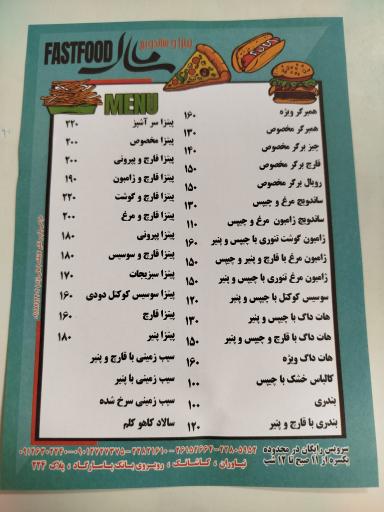 پیتزا و ساندویچ
FASTFOOD
MENU
همبرگر ویژه ۱۶۰
همبرگر مخصوص ۱۳۰
چیز برگر مخصوص ۱۴۰
قارچ برگر مخصوص ۱۵۰
رویال برگر مخصوص ۱۵۰
ساندویچ مرغ و چیپس ۱۳۰
ساندویچ ژامبون مرغ و چیپس ۱۱۰
ژامبون گوشت تنوری با چیپس و پنیر ۱۶۰
ژامبون مرغ با قارچ و چیپس و پنیر ۱۵۰
ژامبون مرغ تنوری با چیپس و پنیر ۱۵۰
سوسیس کوکتل با چیپس و پنیر ۱۲۰
هات داگ با چیپس و پنیر ۱۳۰
هات داگ با قارچ و چیپس و پنیر ۱۵۰
هات داگ ویژه ۱۶۰
کالباس خشک با چیپس ۱۰۰
بندری ۱۰۰
بندری با قارچ و پنیر ۱۲۰
پیتزا سر آشپز ۲۲۰
پیتزا مخصوص ۲۰۰
پیتزا قارچ و پپرونی ۲۰۰
پیتزا قارچ و ژامبون ۱۹۰
پیتزا قارچ و گوشت ۲۲۰
پیتزا قارچ و مرغ ۲۰۰
پیتزا پپرونی ۱۸۰
پیتزا قارچ و سوسیس ۱۸۰
پیتزا سبزیجات ۱۷۰
پیتزا سوسیس کوکتل دودی ۱۶۰
پیتزا قارچ ۱۶۰
پیتزا پنیر ۱۸۰
سیب زمینی با قارچ و پنیر
سیب زمینی با پنیر
سیب زمینی سرخ شده
سالاد کاهو کلم
سرویس رایگان در محدوده
یکسره از ۱۱ صبح تا ۱۲ شب
نیاوران ، کاشانک ، روبروی بانک پاسارگاد ، پلاک ۲۲۴